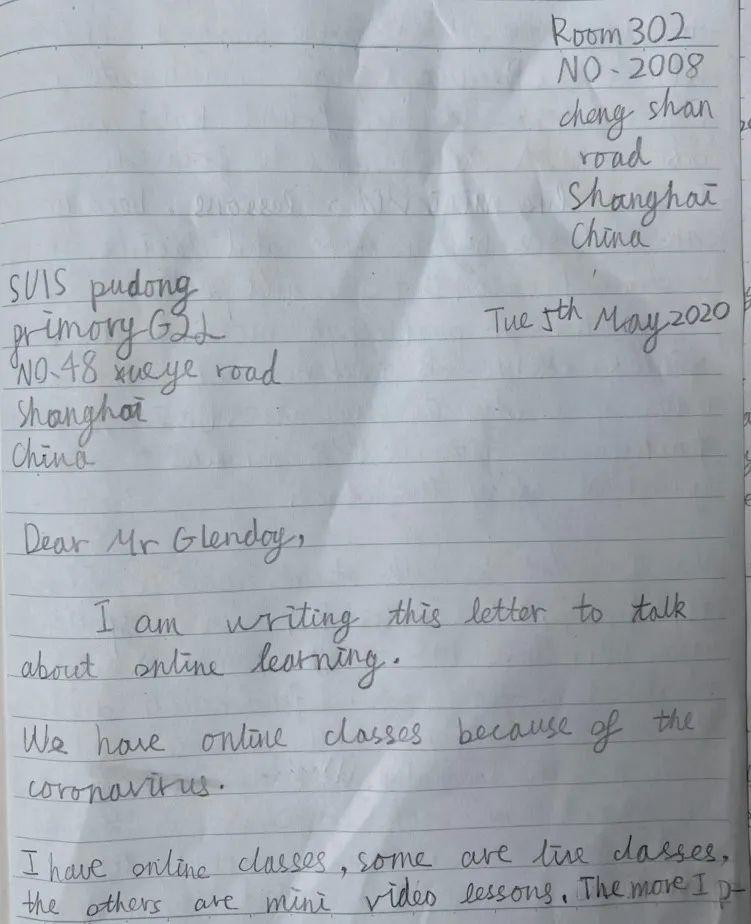 Room 302
NO-2008
cheng shan
road
Shanghai
China
Tue 5th May 2020
SUIS pudong
primory G2L
NO.48 xueye road
Shanghai
China
Dear Mr Glendoy,
I am writing this letter to talk
about online learning.
We have online classes because of the
coronavirus.
I have online classes, some are live classes,
the others are mini video lessons. The more I p-